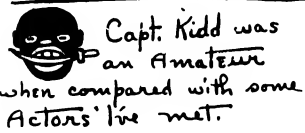 Capt. Kidd was
an Amateur
when compared with some
Actors I've met.